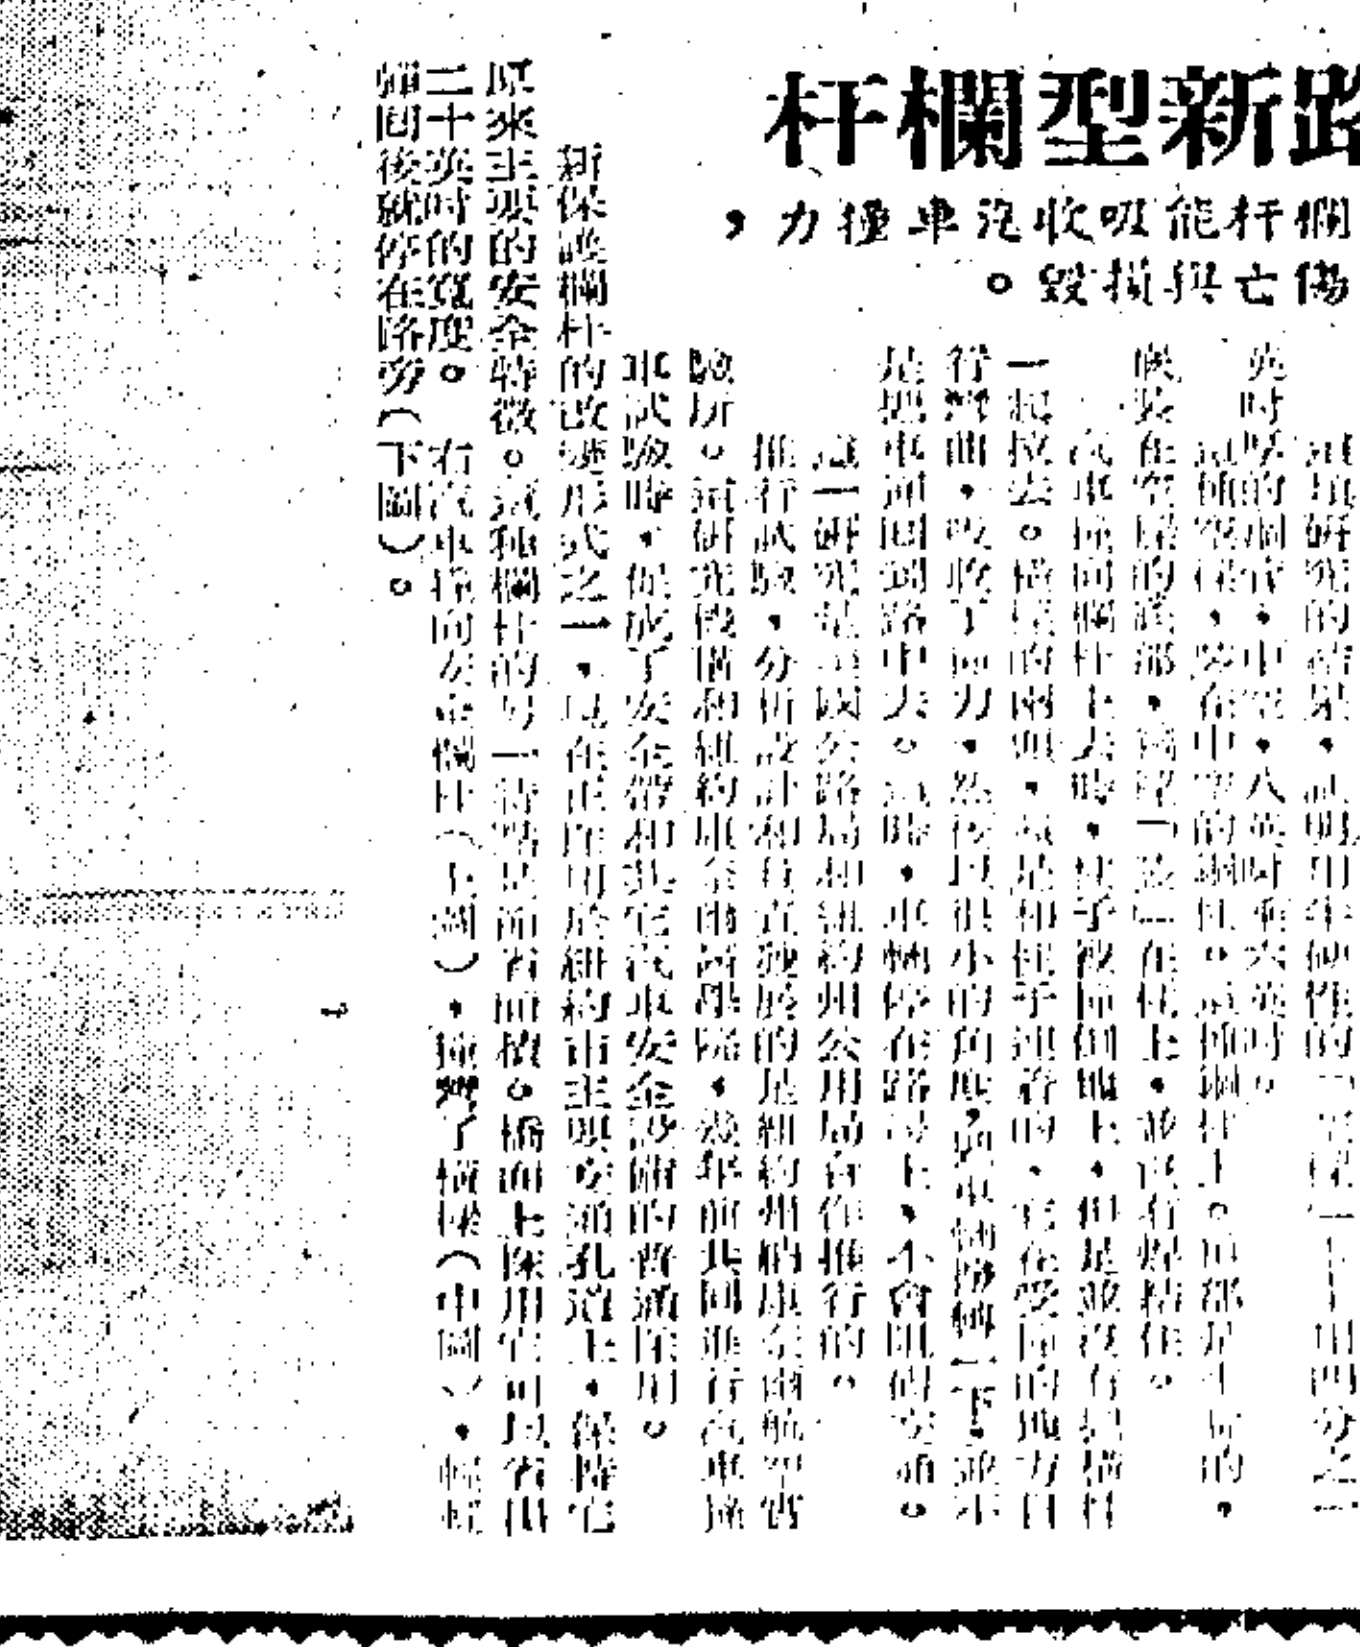 路新型欄杆
欄杆能吸收汽車撞力，
傷亡與損毀。
這項研究的結果，証明用半硬性的「空樑」——用四分之一
英吋厚的鋼管，中空，八英吋乘六英吋。
這種空樑，裝在中空的鋼柱。這種鋼柱上。頂部是
在空樑的底部，在柱上，並沒有焊結住。
汽車撞向欄杆上去時，柱子被撞倒地上，但是並沒有把橫樑
一起拉去。橫樑的兩頭，還是和柱子連着的，它在受撞的地方自
行彎曲，吸收了衝力，然後以很小的角度，車輛轉一下，並不
是把車頭回到路中去。這時，車輛停在路邊上，不會阻碍交通。
這一研究是美國公路局和紐約州公用局合作推行的。
推行試驗，分析設計和負責發展的是紐約州的康奈爾航空實
驗所。這研究機構和紐約康奈爾醫學院，幾年前共同進行汽車撞
車試驗時，促成了安全帶和其它汽車安全設備的普遍採用。
新保護欄杆的改變形式之一，現在正應用於紐約市主要交通孔道上，保持它
原來主要的安全特徵。這種欄杆的另一特點是節省面積。橋面上採用它可以省出
二十英吋的寬度。
右汽車撞向安全欄杆（上圖），撞彎了橫樑（中圖），輕輕
彈回後就停在路旁（下圖）。